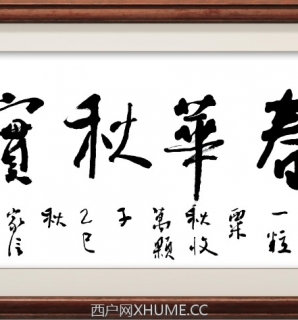 春華秋實
一粒
粟
秋收
萬顆
子
乙巳
秋
家
西户网XHUME.CC